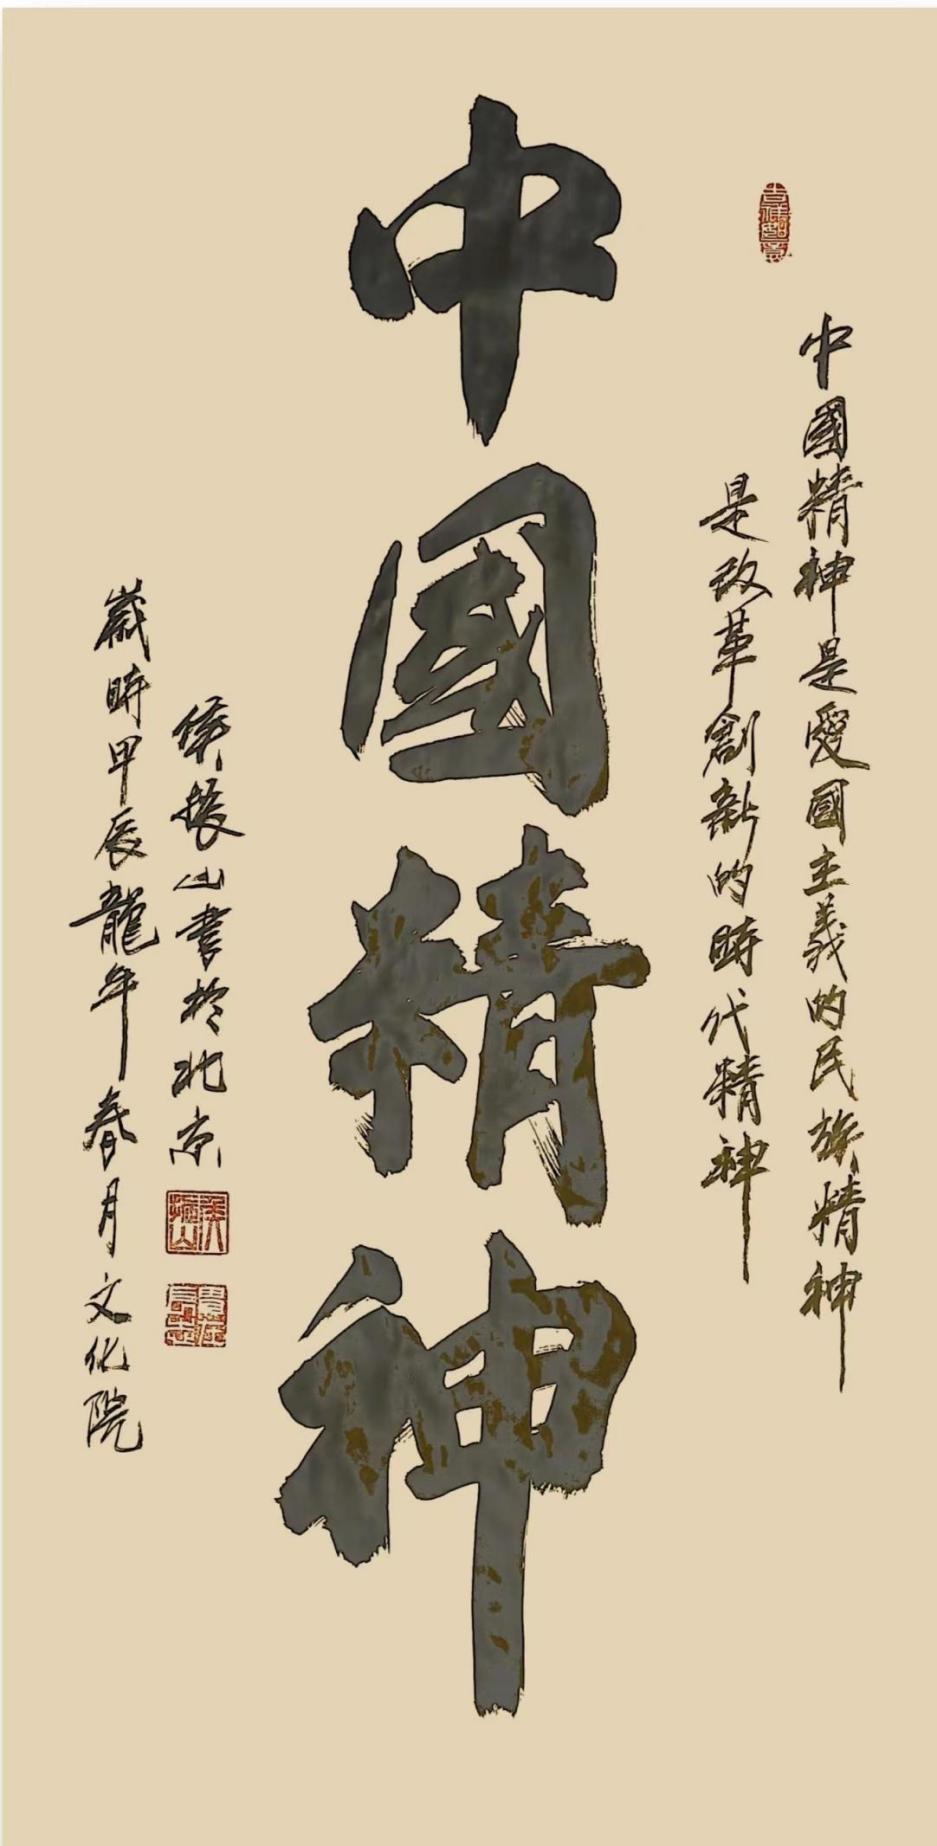 中國精神是愛國主義的民族精神
是改革創新的時代精神
中國精神
侯振山書於北京
歲時甲辰龍年春月文化院
吉祥如意
侯振山